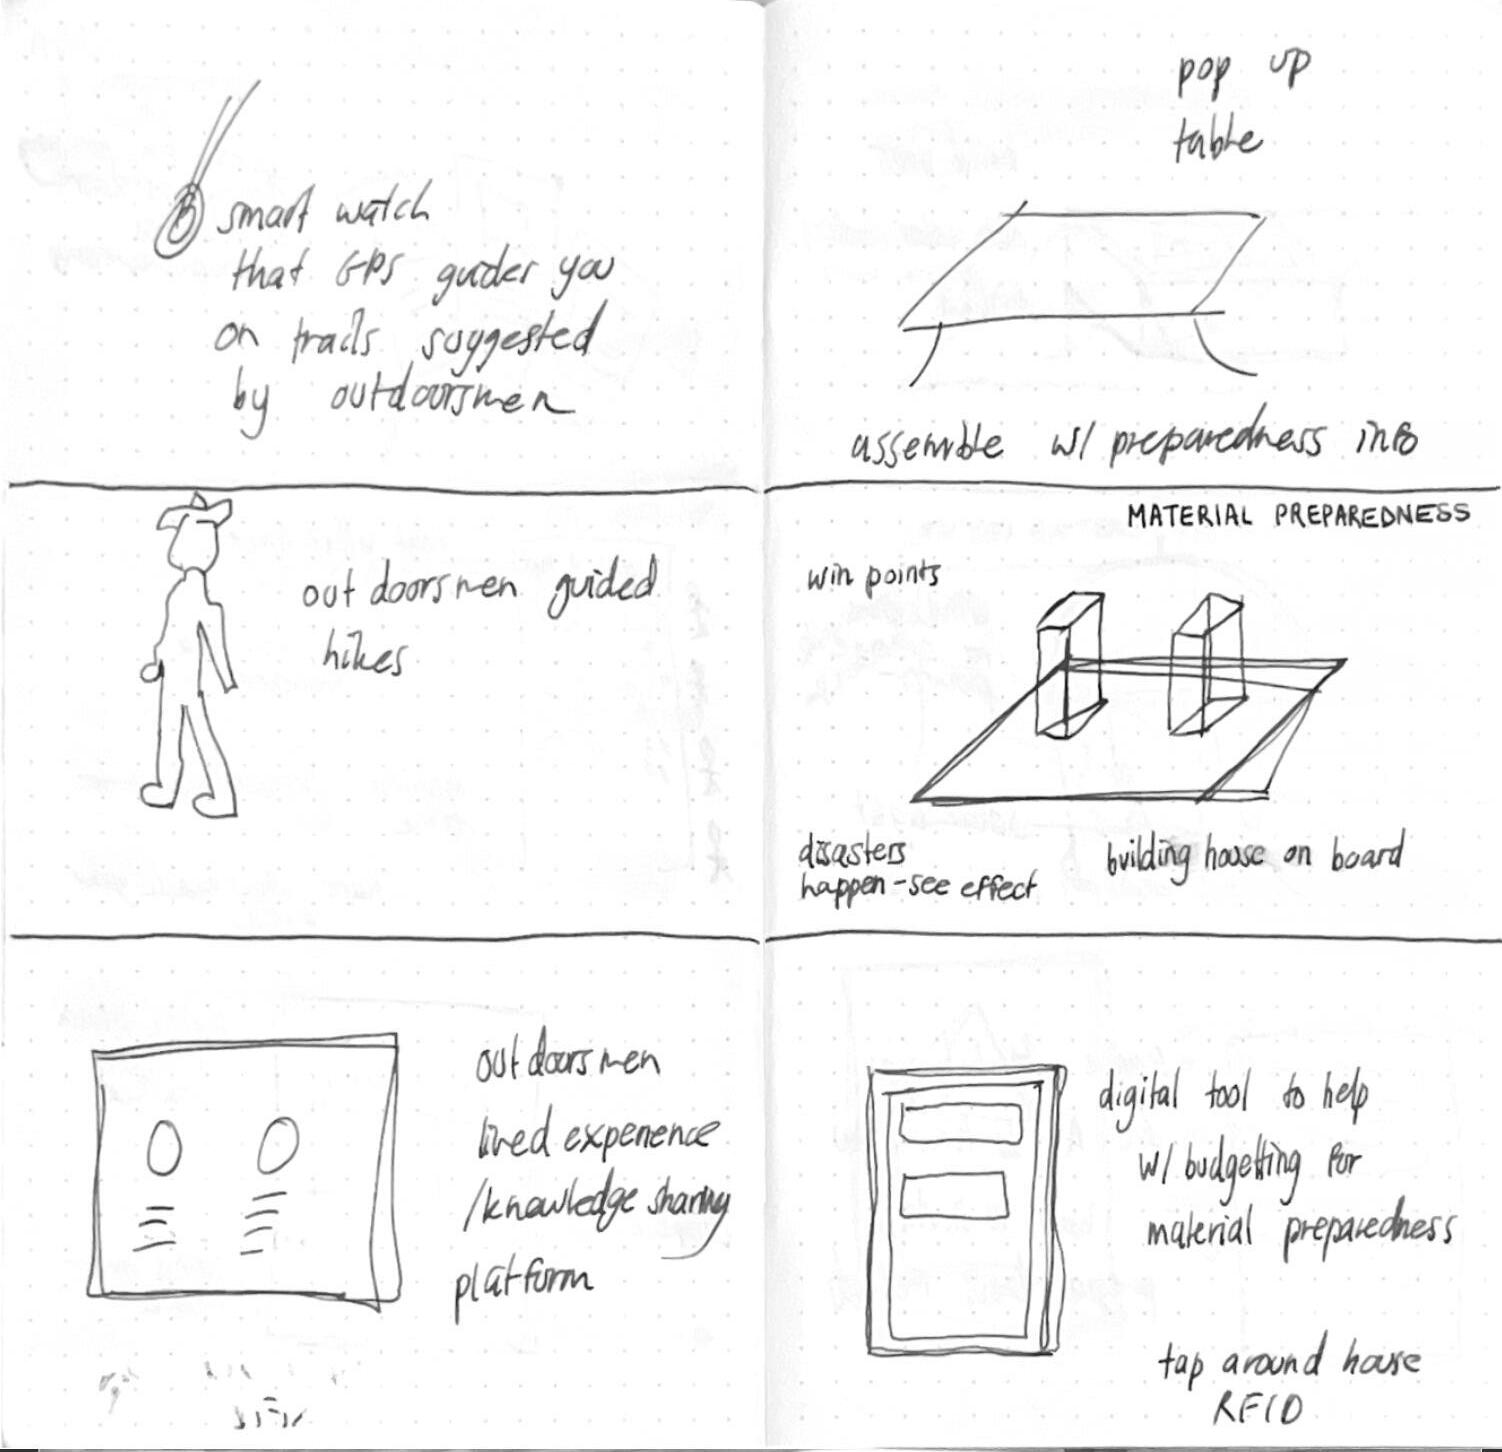 smart watch
that GPS guides you
on trails suggested
by outdoorsmen
pop up
table
assemble w/ preparedness info
outdoorsmen guided
hikes
MATERIAL PREPAREDNESS
win points
disasters
happen - see effect
building house on board
outdoorsmen
lived experience
/knowledge sharing
platform
digital tool to help
w/ budgetting for
material preparedness
tap around house
RFID